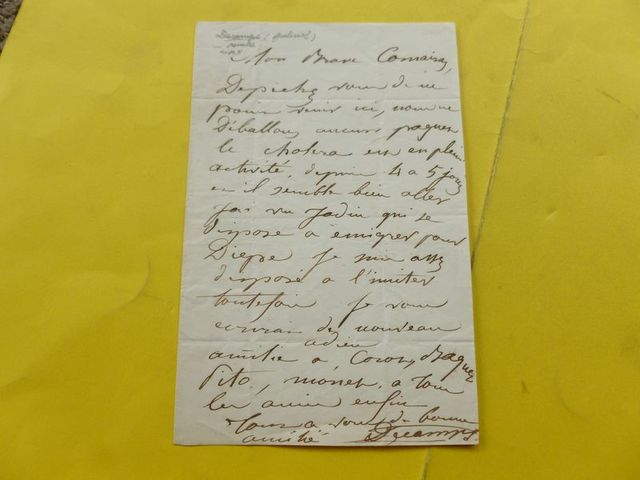 Decamps (Gabriel)
peintre
Mon Brave Comairas,
Depechez vous de ne
point venir ici, nous ne
Déballons aucuns paquets
le cholera est en pleine
activité, depuis 4 a 5 jours
et il semble bien aller
j'ai vu Jadin qui se
dispose a émigrer pour
Dieppe je suis assez
disposé a l'imiter
toutefois je vous
ecrirai de nouveau
adieu
amitié a Corot,
a tous
les amis enfin
Tout a vous de bonne
amitié Decamps